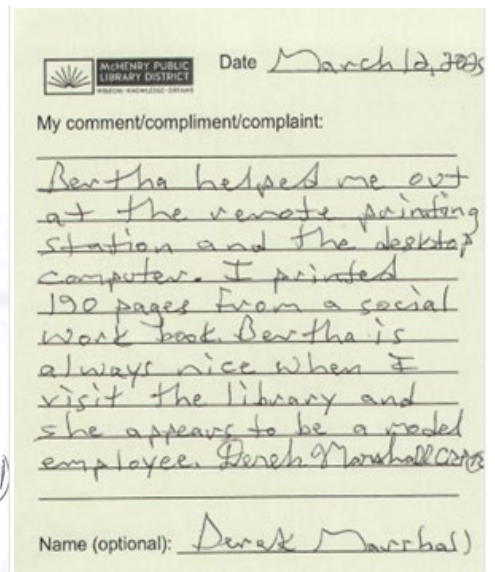 McHENRY PUBLIC
LIBRARY DISTRICT
WISDOM · KNOWLEDGE · DREAMS
Date March 12, 2025
My comment/compliment/complaint:
Bertha helped me out
at the remote printing
station and the desktop
computer. I printed
190 pages from a social
work book. Bertha is
always nice when I
visit the library and
she appears to be a model
employee. Derek Marshall
Name (optional): Derek Marshall